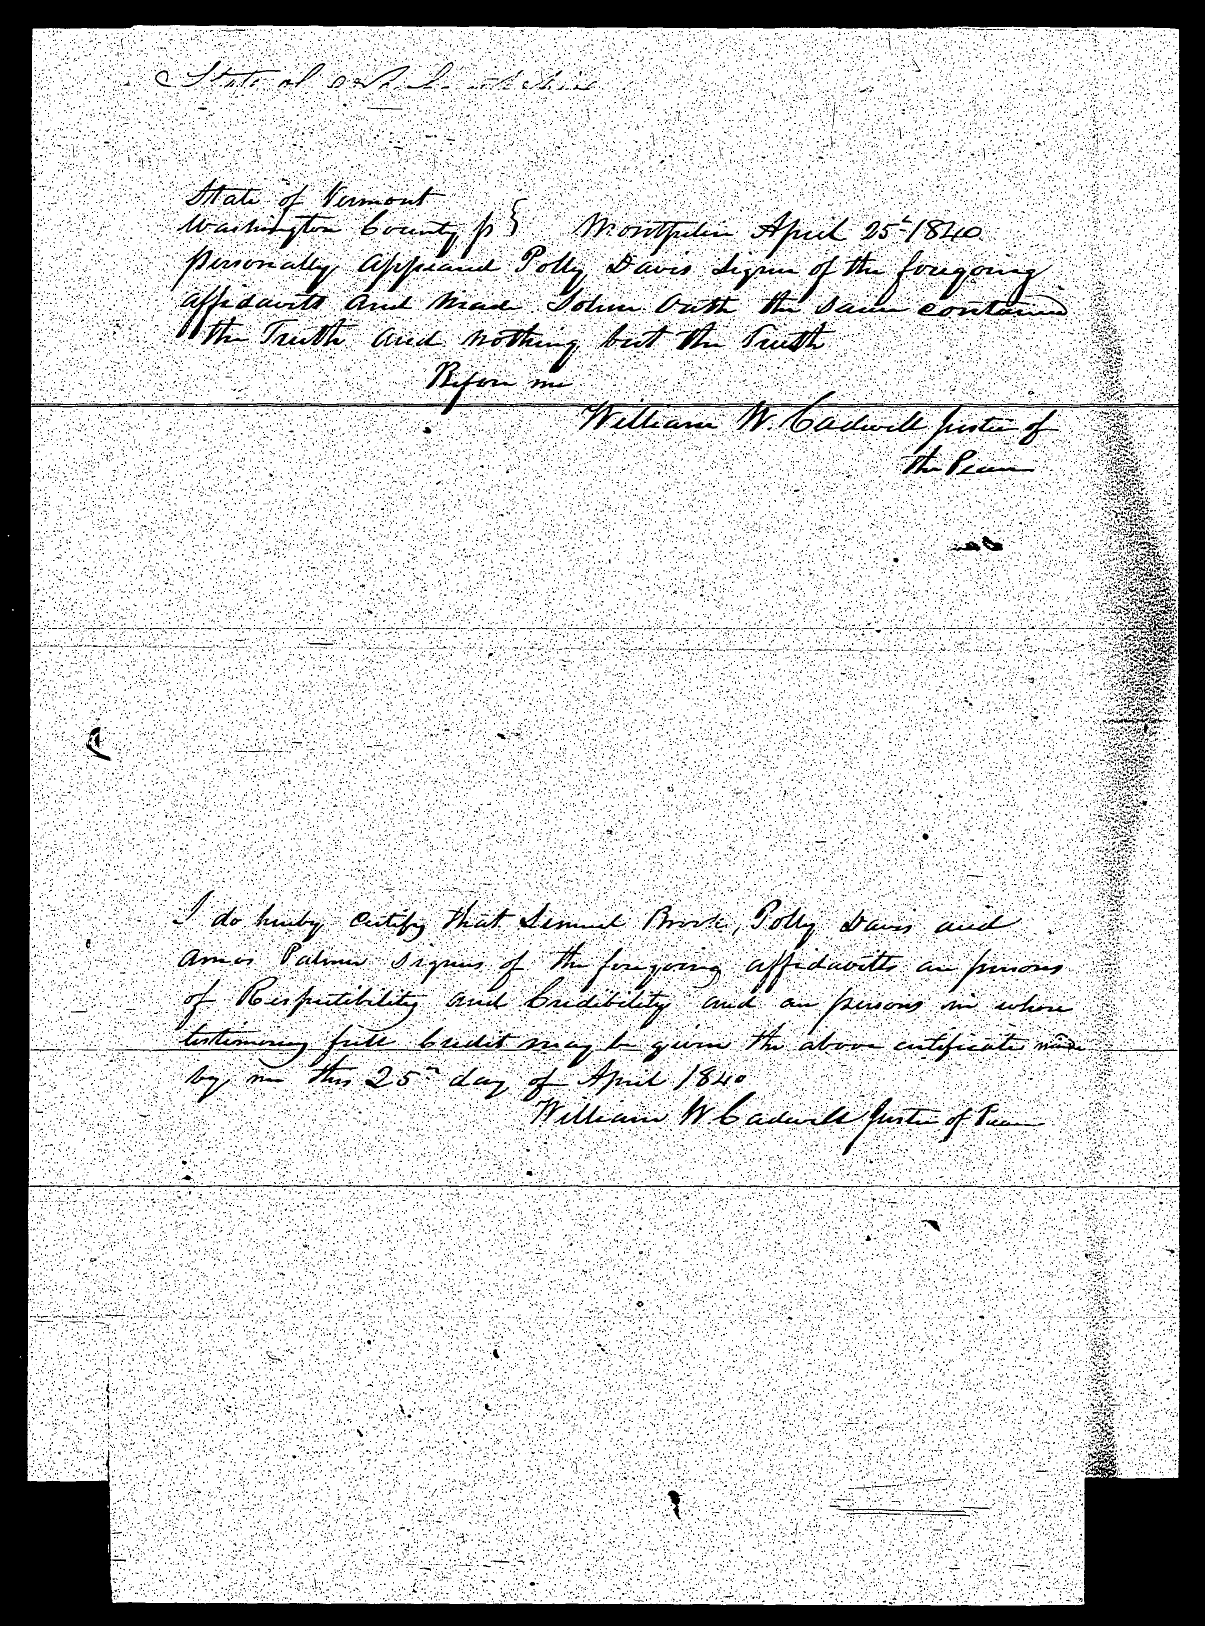 State of
State of Vermont
Washington County ss } Montpelier April 25th 1840
personaley appeared Polly Davis Signer of the foregoing
affidavits and made Solem Oath the same contained
the Truth and nothing but the Truth
Before me
William W. Cadwell Justice of
the Peace
I do hereby certify that Lemuel Brook, Polly Davis and
Amos Palmer Signers of the foregoing affidavitts are persons
of Respectibility and Credibility and are persons in whose
testimoney full Credit may be given the above certificate made
by me this 25th day of April 1840
William W Cadwell Justice of Peace